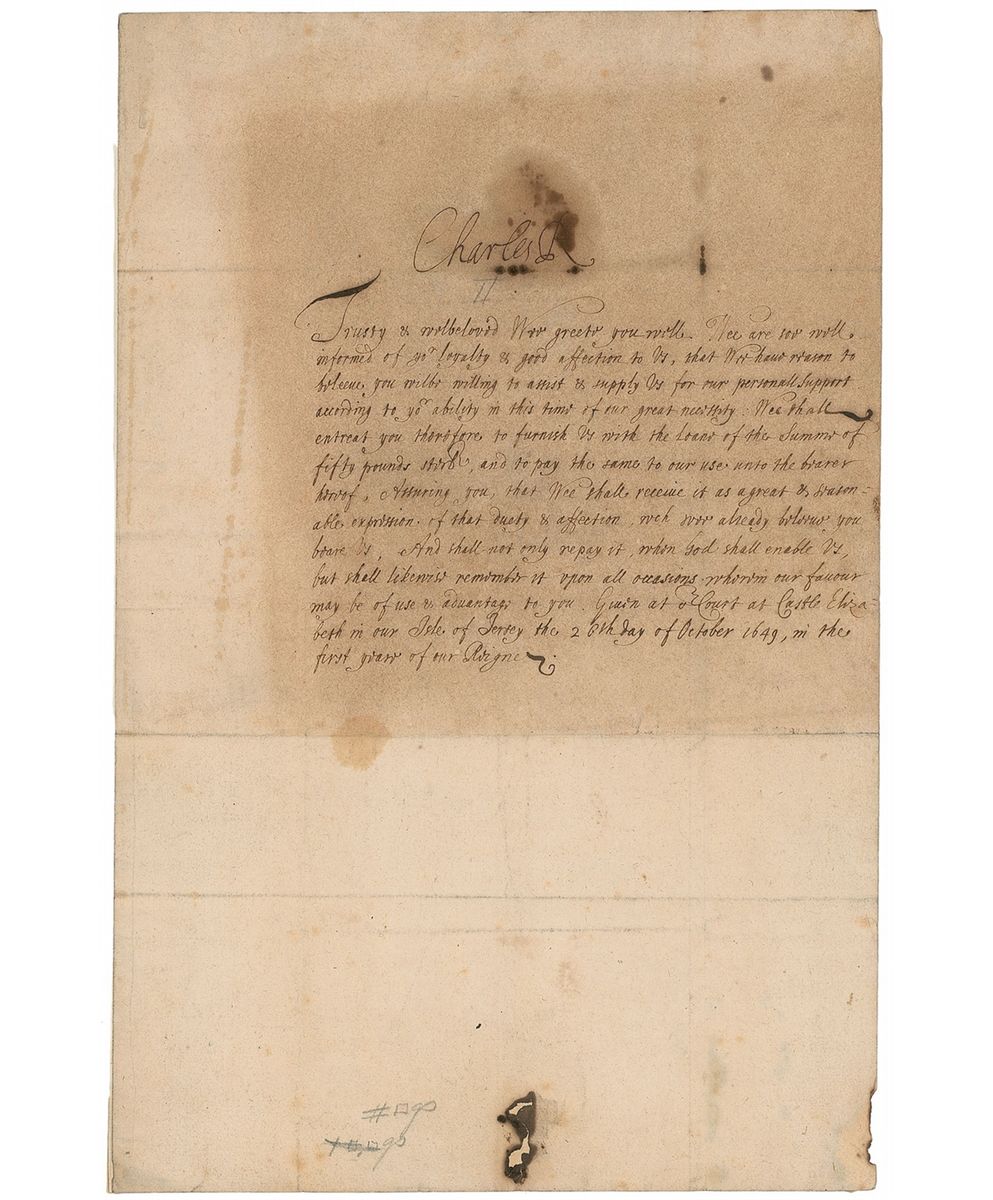 Charles R
II
Trusty & welbelovd Wee greete you well. Wee are soe well
informed of yor Loyalty & good affection to Us, that Wee haue reason to
beleeue you wilbe willing to assist & supply Us for our personall Support
according to yor ability in this time of our great necessity. Wee shall
entreat you therefore to furnish Us with the Loane of the Summe of
fifty pounds sterl, and to pay the same to our use unto the bearer
hereof, Assuring you, that Wee shall receiue it as a great & season=
able expression of that duety & affection wch wee already beleeue you
beare Us, And shall not only repay it, when God shall enable Us,
but shall likewise remember it upon all occasions wherein our fauour
may be of use & advantage to you. Giuen at or Court at Castle Eliza=
beth in our Isle of Jersey the 26th day of October 1649, in the
first yeare of our Reigne